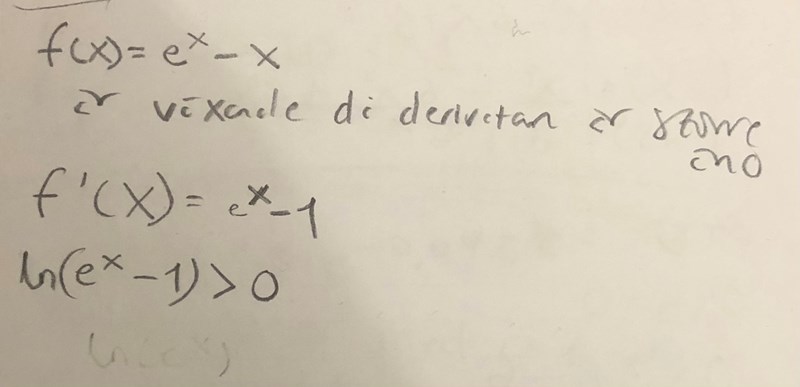 f(x) = e^x - x
är växande då derivatan är större
än 0
f'(x) = e^x - 1
ln(e^x - 1) > 0